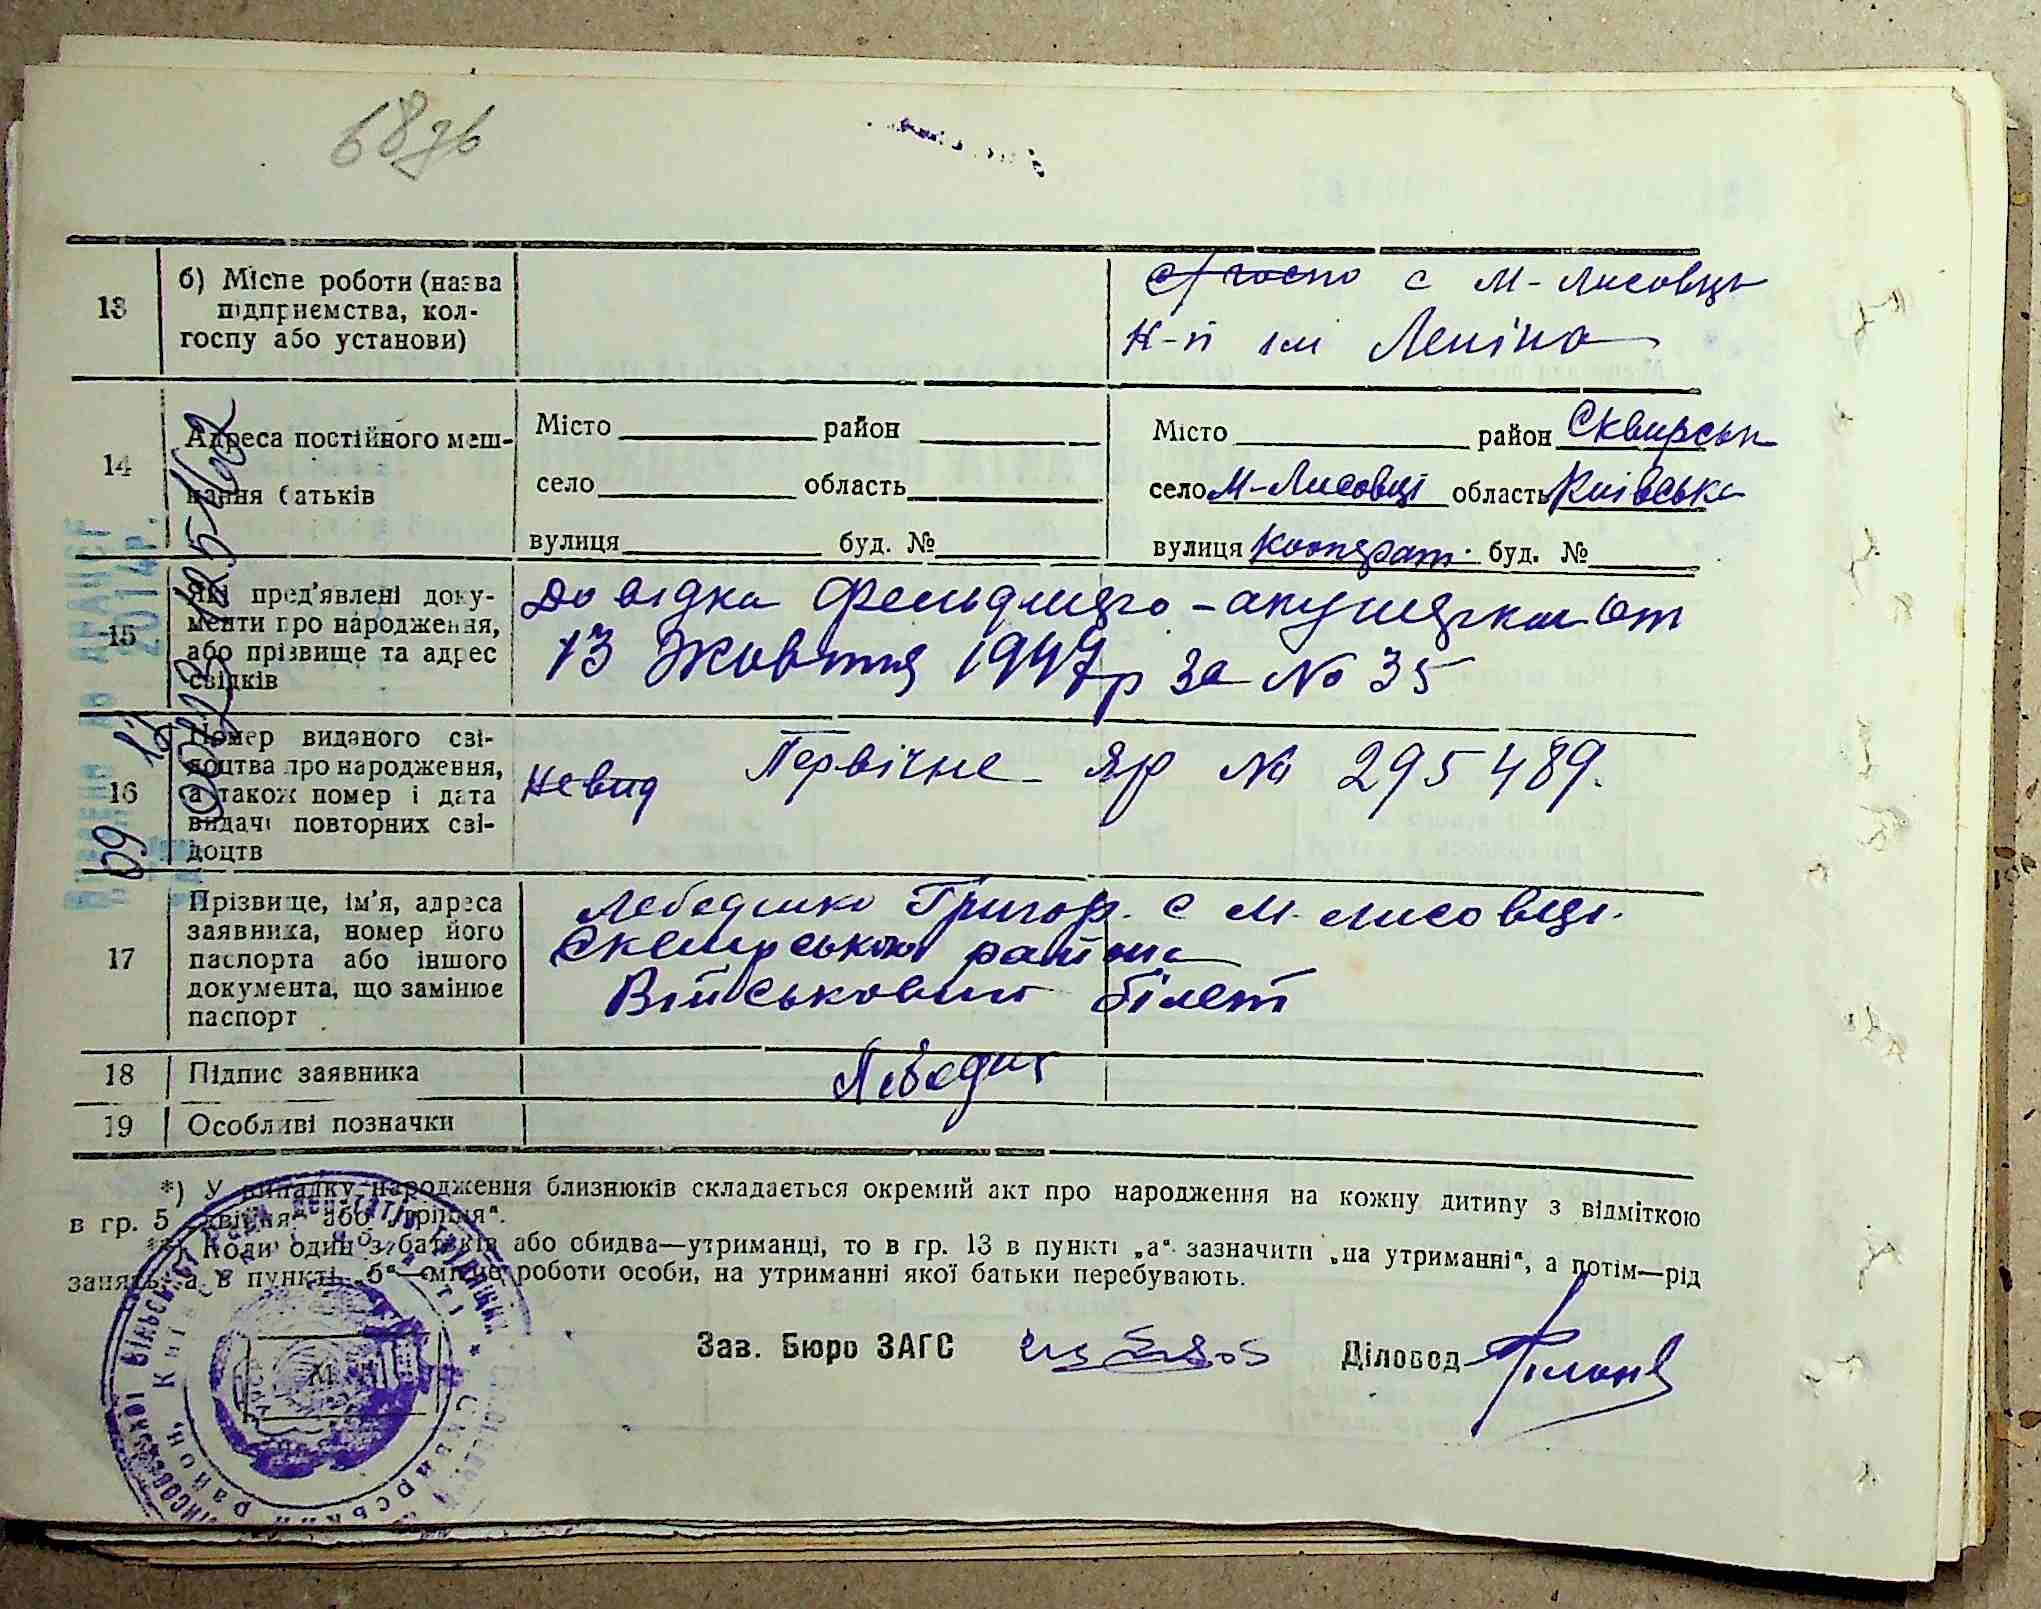 68зв
13
б) Місце роботи (назва
підприємства, кол-
госпу або установи)
с М-Лисовці
к-п ім Леніна
14
Адреса постійного меш-
кання батьків
Місто район
село область
вулиця буд. №
Місто район Сквирськ
село М-Лисовці область Київська
вулиця Кооперат. буд. №
15
Які пред'явлені доку-
менти про народження,
або прізвище та адрес
свідків
Довідка Фельдшеро-акушерськ от
13 Жовтня 1947р за № 35
16
Номер виданого сві-
доцтва про народження,
а також номер і дата
видачі повторних сві-
доцтв
Невид Первічне ЯР № 295489.
17
Прізвище, ім'я, адреса
заявника, номер його
паспорта або іншого
документа, що замінює
паспорт
Григор. с М-Лисовці.
Сквирського района
Військовий білет
18
Підпис заявника
19
Особливі позначки
*) У випадку народження близнюків складається окремий акт про народження на кожну дитину з відміткою
в гр. 5 „двійня" або „трійня".
**) Коли один з батьків або обидва—утриманці, то в гр. 13 в пункті „а" зазначити „на утриманні", а потім—рід
занять, а в пункті „б"—місце роботи особи, на утриманні якої батьки перебувають.
Зав. Бюро ЗАГС Діловод
2014р.